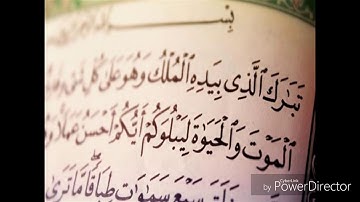 تَبَٰرَكَ ٱلَّذِي بِيَدِهِ ٱلۡمُلۡكُ وَهُوَ عَلَىٰ كُلِّ شَيۡءٍ
ٱلۡمَوۡتَ وَٱلۡحَيَوٰةَ لِيَبۡلُوَكُمۡ أَيُّكُمۡ أَحۡسَنُ عَمَلٗا
سَبۡعَ سَمَٰوَٰتٖ طِبَاقٗاۖ مَّا تَرَىٰ
CyberLink
by PowerDirector